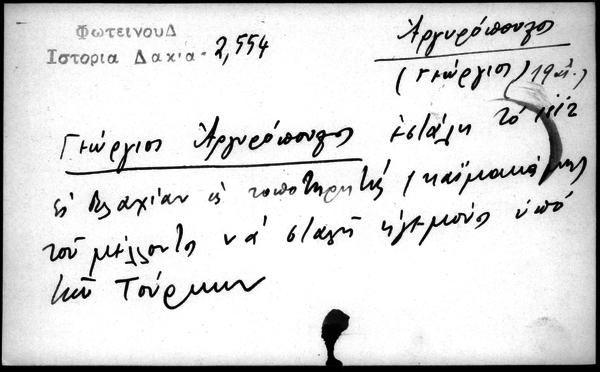 Φωτεινου Δ
Ιστορια Δακια. 2,554
Ἀργυρόπουλος
(Γεώργιος) 19 αἰ.
Γεώργιος Ἀργυρόπουλος ἐστάλη τὸ 1812
εἰς Βλαχίαν ὡς τοποτηρητής (καϊμακάμης
τοῦ μέλλοντος νά σταλῇ ἡγεμόνος ὑπό
τῶν Τούρκων